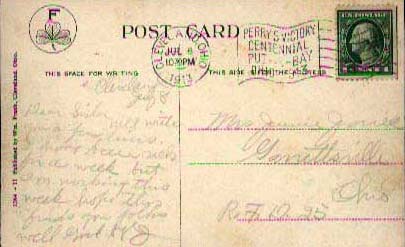 F
POST CARD
CLEVELAND, OHIO
JUL 8
1030PM
1913
PERRY'S VICTORY
CENTENNIAL
PUT-IN-BAY
U.S. POSTAGE
THIS SPACE FOR WRITING
THIS SIDE FOR THE ADDRESS
Cleveland
July 8
Dear Sister
will write
you a few lines.
I have been sick
one week but
am working this
week hope this
finds you folks
well
Mrs Jennie
Garrettsville
Ohio
R.F.D. 25
Published by Wm. Frank, Cleveland, Ohio.